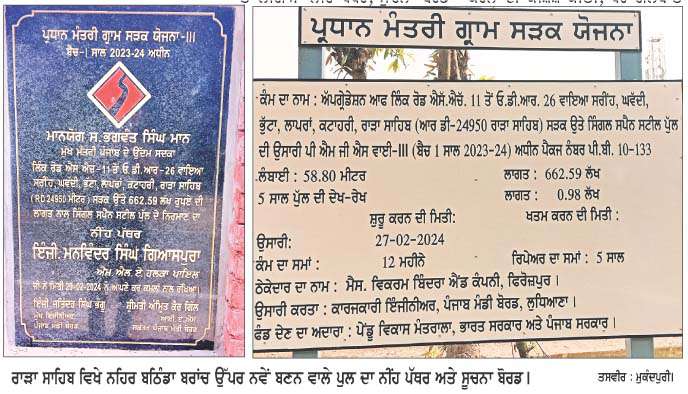 ਪ੍ਰਧਾਨ ਮੰਤਰੀ ਗ੍ਰਾਮ ਸੜਕ ਯੋਜਨਾ -III
ਬੈਚ-I ਸਾਲ 2023-24 ਅਧੀਨ
ਮਾਨਯੋਗ ਸ. ਭਗਵੰਤ ਸਿੰਘ ਮਾਨ
ਮੁੱਖ ਮੰਤਰੀ ਪੰਜਾਬ ਦੇ ਉੱਦਮ ਸਦਕਾ
ਲਿੰਕ ਰੋਡ ਐਸ.ਐਚ -11 ਤੋਂ ਓ.ਡੀ.ਆਰ -26 ਵਾਇਆ
ਸਰੀਂਹ, ਘਵੱਦੀ, ਭੁੱਟਾ, ਲਾਪਰਾਂ, ਕਟਾਹਰੀ, ਰਾੜਾ ਸਾਹਿਬ
(RD 24950 ਮੀਟਰ) ਸੜਕ ਉੱਤੇ 662.59 ਲੱਖ ਰੁਪਏ ਦੀ
ਲਾਗਤ ਨਾਲ ਸਿੰਗਲ ਸਪੈਨ ਸਟੀਲ ਪੁੱਲ ਦੇ ਨਿਰਮਾਣ ਦਾ
ਨੀਂਹ ਪੱਥਰ
ਇੰਜੀ. ਮਨਵਿੰਦਰ ਸਿੰਘ ਗਿਆਸਪੁਰਾ
ਐਮ ਐਲ ਏ ਹਲਕਾ ਪਾਇਲ
ਜੀ ਨੇ ਮਿਤੀ 29-02-2024 ਨੂੰ ਆਪਣੇ ਕਰ ਕਮਲਾਂ ਨਾਲ ਰੱਖਿਆ।
ਇੰਜੀ. ਜਤਿੰਦਰ ਸਿੰਘ ਭੰਗੂ
ਮੁੱਖ ਇੰਜੀਨੀਅਰ
ਪੰਜਾਬ ਮੰਡੀ ਬੋਰਡ
ਸ਼੍ਰੀਮਤੀ ਅੰਮ੍ਰਿਤ ਕੌਰ ਗਿੱਲ
ਆਈ.ਏ.ਐਸ
ਸਕੱਤਰ ਪੰਜਾਬ ਮੰਡੀ ਬੋਰਡ
ਪ੍ਰਧਾਨ ਮੰਤਰੀ ਗ੍ਰਾਮ ਸੜਕ ਯੋਜਨਾ
ਕੰਮ ਦਾ ਨਾਮ : ਅੱਪਗ੍ਰੇਡੇਸ਼ਨ ਆਫ ਲਿੰਕ ਰੋਡ ਐਸ.ਐਚ. 11 ਤੋਂ ਓ.ਡੀ.ਆਰ. 26 ਵਾਇਆ ਸਰੀਂਹ, ਘਵੱਦੀ,
ਭੁੱਟਾ, ਲਾਪਰਾਂ, ਕਟਾਹਰੀ, ਰਾੜਾ ਸਾਹਿਬ (ਆਰ ਡੀ-24950 ਰਾੜਾ ਸਾਹਿਬ) ਸੜਕ ਉਤੇ ਸਿੰਗਲ ਸਪੈਨ ਸਟੀਲ ਪੁੱਲ
ਦੀ ਉਸਾਰੀ ਪੀ ਐਮ ਜੀ ਐਸ ਵਾਈ-III (ਬੈਚ 1 ਸਾਲ 2023-24) ਅਧੀਨ ਪੈਕਜ ਨੰਬਰ ਪੀ.ਬੀ. 10-133
ਲੰਬਾਈ : 58.80 ਮੀਟਰ ਲਾਗਤ : 662.59 ਲੱਖ
5 ਸਾਲ ਪੁੱਲ ਦੀ ਦੇਖ-ਰੇਖ ਲਾਗਤ : 0.98 ਲੱਖ
ਸ਼ੁਰੂ ਕਰਨ ਦੀ ਮਿਤੀ: ਖਤਮ ਕਰਨ ਦੀ ਮਿਤੀ :
ਉਸਾਰੀ: 27-02-2024
ਕੰਮ ਦਾ ਸਮਾਂ : 12 ਮਹੀਨੇ ਰਿਪੇਅਰ ਦਾ ਸਮਾਂ : 5 ਸਾਲ
ਠੇਕੇਦਾਰ ਦਾ ਨਾਮ : ਮੈਸ. ਵਿਕਰਮ ਬਿੰਦਰਾ ਐਂਡ ਕੰਪਨੀ, ਫਿਰੋਜ਼ਪੁਰ।
ਉਸਾਰੀ ਕਰਤਾ : ਕਾਰਜਕਾਰੀ ਇੰਜੀਨੀਅਰ, ਪੰਜਾਬ ਮੰਡੀ ਬੋਰਡ, ਲੁਧਿਆਣਾ।
ਫੰਡ ਦੇਣ ਦਾ ਅਦਾਰਾ : ਪੇਂਡੂ ਵਿਕਾਸ ਮੰਤਰਾਲਾ, ਭਾਰਤ ਸਰਕਾਰ ਅਤੇ ਪੰਜਾਬ ਸਰਕਾਰ।
ਰਾੜਾ ਸਾਹਿਬ ਵਿਖੇ ਨਹਿਰ ਬਠਿੰਡਾ ਬਰਾਂਚ ਉੱਪਰ ਨਵੇਂ ਬਣਨ ਵਾਲੇ ਪੁਲ ਦਾ ਨੀਂਹ ਪੱਥਰ ਅਤੇ ਸੂਚਨਾ ਬੋਰਡ। ਤਸਵੀਰ : ਮੁਕੰਦਪੁਰੀ।